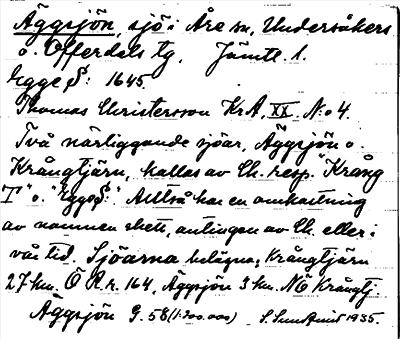 Äggsjön, sjö i Åre sn, Undersåkers
o. Offerdals tg. Jämtl. l.
Egge S: 1645.
Thomas Christersson KrA, XX N:o 4.
Två närliggande sjöar, Äggsjön o.
Krångtjärn, kallas av Ch. resp. "Krång
T" o. "Egge S:" Alltså har en omkastning
av namnen skett, antingen av Ch. eller i
vår tid. Sjöarna belägna: Krångtjärn
27 km. Ö R.r. 164, Äggsjön 3 km. NÖ Krångtj.
Äggsjön G. 58 (1:200.000) S. 1935.